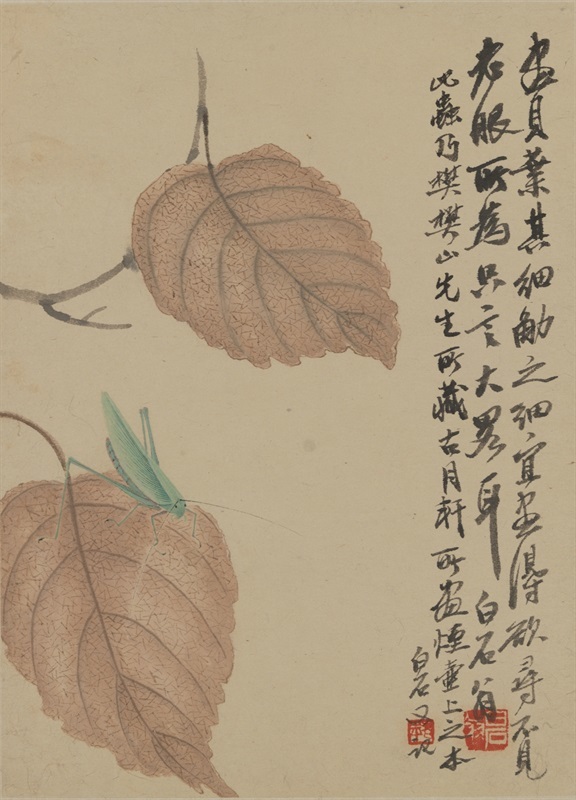 画貝葉其細觔之細宜画得欲尋不見
老眼所為只言大畧耳白石翁
此蟲乃樊樊山先生所藏古月軒所畫煙壺上之本
白石又記